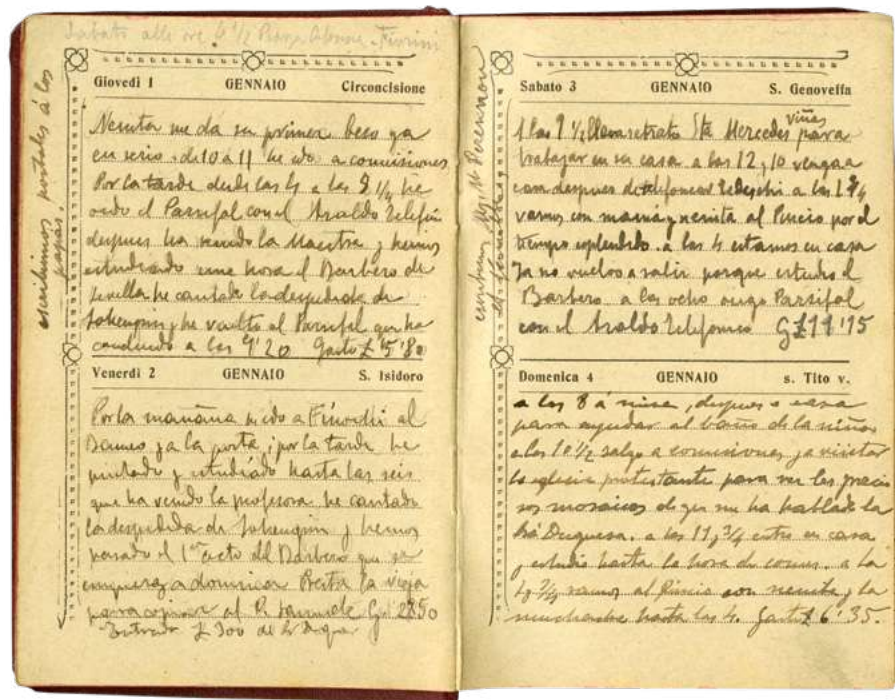 Sabato alle ore 4 1/2 Piazza
escribimos postales á los
papás.
Giovedì 1 GENNAIO Circoncisione
Nenita me da su primer beso ya
en serio. de 10 a 11 he ido a comisiones.
Por la tarde desde las 4 a las 9 1/4 he
oido el Parsifal con el Araldo Telefon
despues ha venido la Maestra y hemos
estudiado una hora el Barbero de
Sevilla he cantado la despedida de
Lohengrin y he vuelto al Parsifal que ha
concluido a las 9'20 Gasto £ 5'80
Venerdì 2 GENNAIO S. Isidoro
Por la mañana he ido a al
Banco y a la posta; por la tarde he
pintado y estudiado hasta las seis
que ha venido la profesora he cantado
la despedida de Lohengrin y hemos
pasado el 1er acto del Barbero que ya
empiezo a dominar la vieja
para copiar al P. G. 2850
Entrada £ 300 de la
Sabato 3 GENNAIO S. Genoveffa
A las 9 1/2 llevo retrato Sta Mercedes viñas para
trabajar en su casa a las 12 y 10 vengo a
casa despues de telefonear Tedeschi a las 1 3/4
vamos con mamá y nenita al Pincio por el
tiempo esplendido. a las 4 estamos en casa
Ya no vuelvo a salir porque estudio el
Barbero a las ocho oigo Parsifal
con el Araldo Telefonico G £ 11'15
Domenica 4 GENNAIO s. Tito v.
a las 8 á misa, despues a casa
para ayudar al baño de la niña
a las 10 1/2 salgo a comisiones y a visitar
la iglesia protestante para ver los precio
sos mosaicos de que me ha hablado la
Duquesa. a las 11 y 3/4 entro en casa
y estudio hasta la hora de comer. a la
1 y 3/4 vamos al Pincio con nenita y la
muchacha hasta las 4. Gasto £ 6'35.